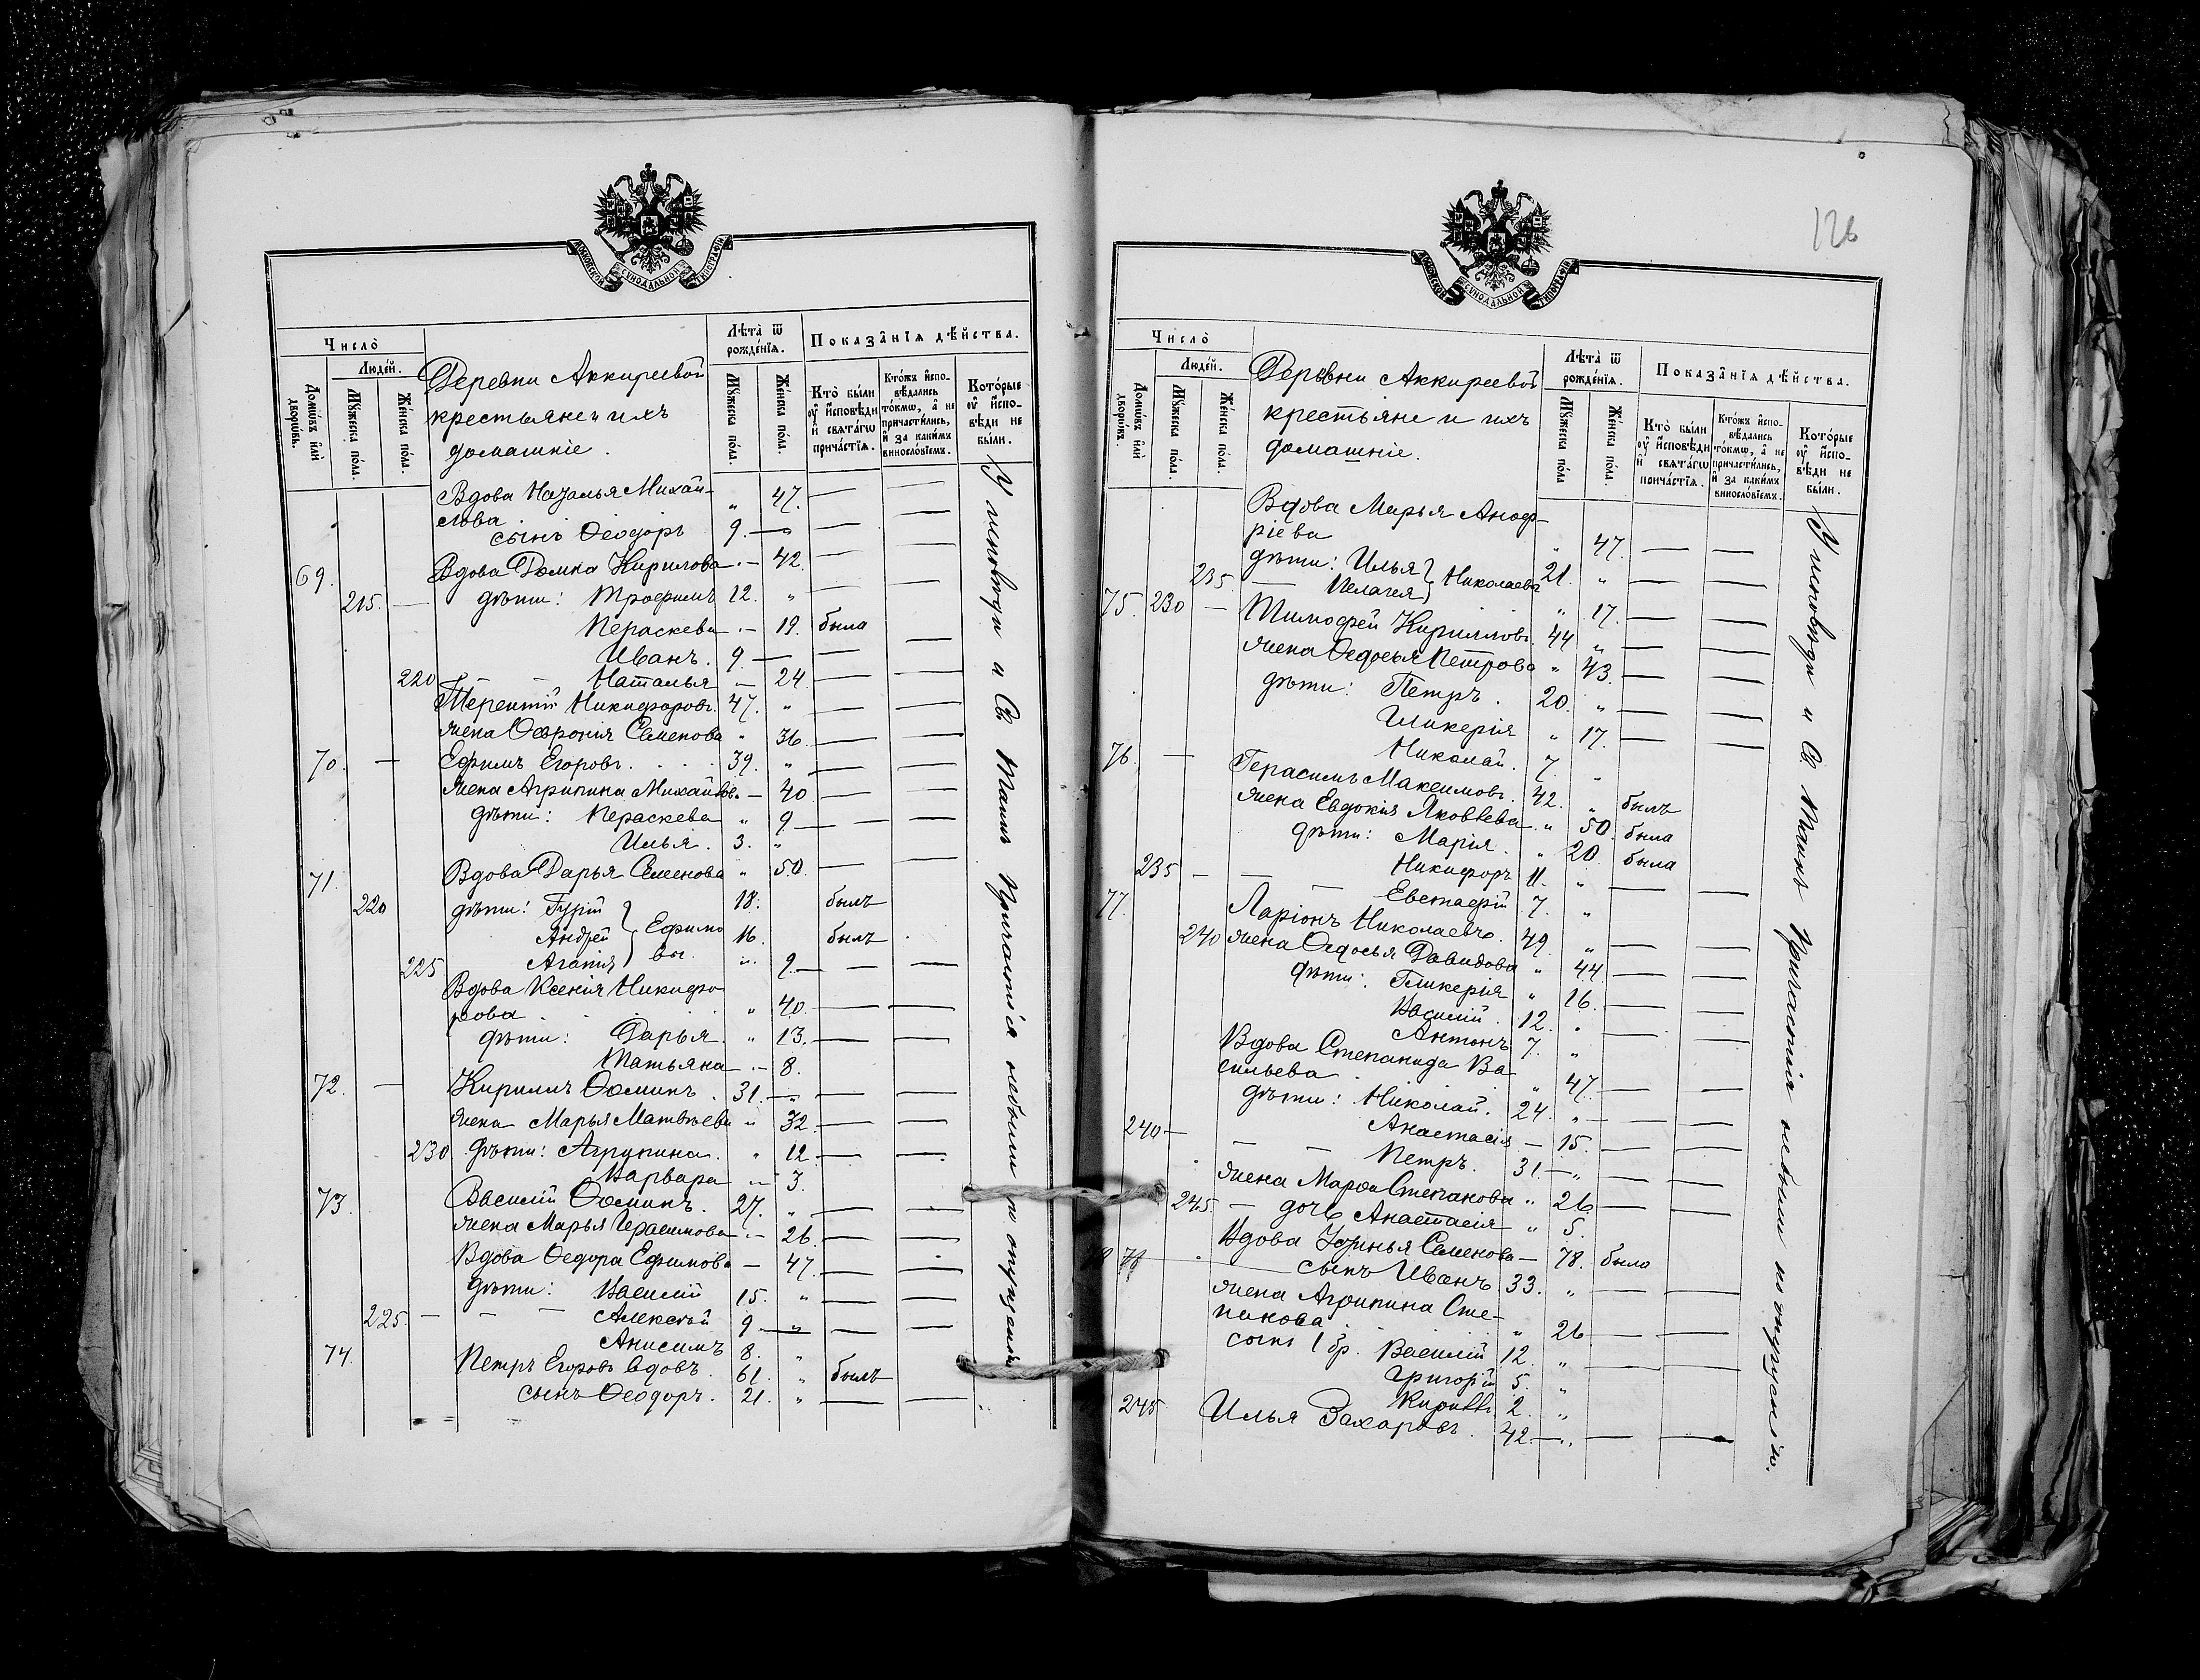 МОСКОВСКОЙ СѴНОДАЛЬНОЙ ТИПОГРАФІИ
Число̀
Домѡ́въ и҆лѝ дворѡ́въ.
Люде́й.
Мꙋ́жеска по́ла.
Же́нска по́ла.
Деревни Аккиреевой
крестьяне и ихъ
домашніе.
Лѣта̀ ѿ рожде́нїѧ.
Мꙋ́жеска по́ла.
Же́нска по́ла.
Показа̑нїѧ дѣ́йства.
Кто̀ бы́ли ᲂу҆ и҆́сповѣди и҆ свѧта́гѡ прича́стїѧ.
Кто́жъ и҆спо-
вѣ́дались
то́кмѡ, а҆ не
причасти́лись,
и҆ за каки́мъ
винослові́емъ.
Кото́рые
ᲂу҆ и҆́спо-
вѣди не
бы́ли.
Вдова Наталья Михай- „ 47. — —
лова
сынъ Ѳеодоръ 9. — „ — —
69. Вдова Домна Кирилова „ — 42. — —
215. — дѣти: Трофимъ 12. „ — —
Пераскева „ — 19. была
Иванъ. 9. — — —
220 — — Наталья — 24. — —
Терентій Никифоровъ. 47. „ — —
жена Ѳеврония Семенова „ 36. — —
70. — Ефимъ Егоровъ. 39. „ — —
жена Агрипина Михайлов. — 40. — —
дѣти: Пераскева „ 9 — — —
Илья. 3. „
71. Вдова Дарья Семенова „ 50. — —
220 дѣти: Гурій 18. былъ
Андрей } Ефимо 16. былъ
225. Агапия вы. „ 9. — — —
Вдова Ксенія Никифо
рова „ 40. — —
дѣти: Дарья. „ 13. — —
Татьяна „ — 8.
72. — Кириллъ Ѳоминъ. 31. — „ — —
жена Марья Матвѣева „ 32. — —
230 дѣти: Агрупина. „ 12. — —
Варвара „ 3.
73. Василій Ѳоминъ. 27. „ — —
жена Марья Герасимова „ — 26. — —
Вдова Ѳедора Ефимова — 47. — —
дѣти: Василій 15. „ — —
225. — — — Алексѣй 9 — „ — —
Анисимъ 8. „
74. Петръ Егоровъ вдовъ. 61. „ былъ
сынъ Ѳеодоръ. 21. „ — —
У исповѣди и Св Таинъ Причастія небыли по опущенію
126
МОСКОВСКОЙ СѴНОДАЛЬНОЙ ТИПОГРАФІИ
Число̀
Домѡ́въ и҆лѝ дворѡ́въ.
Люде́й.
Мꙋ́жеска по́ла.
Же́нска по́ла.
Деревни Аккиреевой
крестьяне и ихъ
домашніе.
Лѣта̀ ѿ рожде́нїѧ.
Мꙋ́жеска по́ла
Же́нска по́ла.
Показа̑нїѧ дѣ́йства.
Кто̀ бы́ли ᲂу҆ и҆́сповѣди и҆ свѧта́гѡ прича́стїѧ.
Кто́жъ и҆спо-
вѣ́дались
то́кмѡ, а҆ не
причасти́лись,
и҆ за каки́мъ
винослові́емъ.
Кото́рые
ᲂу҆ и҆́спо-
вѣди не
бы́ли.
Вдова Марья Аноф-
ріева „ 47. — —
дѣти: Илья } Николаевы 21. „ — —
235. — Пелагея „ 17. — —
75. 230 — Тимофей Кирилловъ 44 „ — —
жена Ѳедосья Петрова „ 43. — —
дѣти: Петръ. 20. „ — —
Гликерія „ 17. — —
Николай. 7. „
76. — Герасимъ Максимовъ. 42. „ былъ
жена Евдокия Яковлева „ 50. была
дѣти: Марія. „ 20. была
235 — — — Никифоръ 11. „ — —
Евстафій 7. „
77. Ларіонъ Николаевъ. 49. „ — —
240 жена Ѳедосья Давидова „ 44. — —
дѣти: Гликерия „ 16. — —
Василій. 12. „ — —
Антонъ 7. „
Вдова Степанида Ва
сильева „ 47. — —
дѣти: Николай. 24. „ — —
Анастасія — 15. — —
240 — — — Петръ. 31 — „ — —
жена Марѳа Степанова „ 26. — —
245. — дочь Анастасія „ 5.
78 Вдова Устинья Семенова — 78. была
сынъ Иванъ 33. „ — —
жена Агрипина Сте-
панова „ 26 — —
сыны 1 бр. Василій 12. „ — —
Григорій 5. „
Кириллъ 2. „
245 Илья Захаровъ. 42. — „ — —
У исповѣди и Св Таинъ Причастія небыли по опущенію.